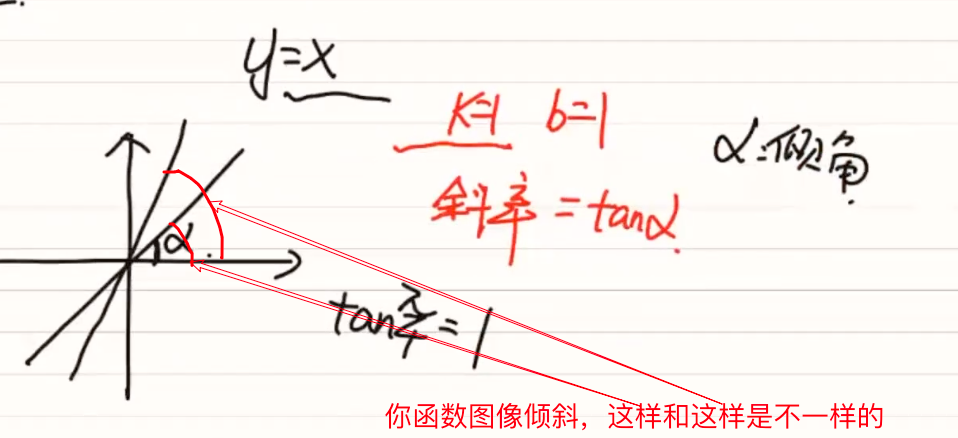 y=x
k=1 b=1
α:倾角.
斜率=tanα.
α.
tanπ/4=1
你函数图像倾斜，这样和这样是不一样的